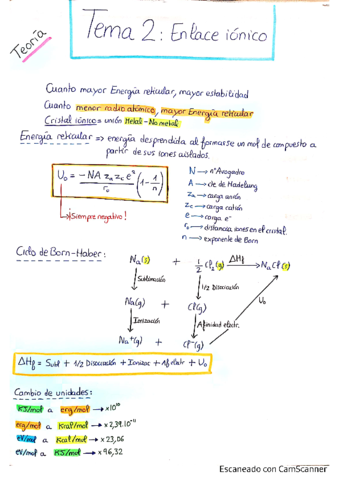 Teoría
Tema 2: Enlace iónico
Cuanto mayor Energía reticular, mayor estabilidad
Cuanto menor radio atómico, mayor Energía reticular
Cristal iónico = unión Metal-No metal
Energía reticular => energía desprendida al formarse un mol de compuesto a
partir de sus iones aislados.
U₀ = -NA z_a z_c e² / r₀ (1 - 1/n)
↳¡Siempre negativo!
N → nº Avogadro
A → cte de Madelung
z_a → carga anión
z_c → carga catión
e → carga e⁻
r₀ → distancia iones en el cristal
n → exponente de Born
Ciclo de Born-Haber:
Na(s) + 1/2 Cl₂(g) ΔHf → NaCl(s)
Sublimación
1/2 Disociación
U₀
Na(g) + Cl(g)
Ionización
Afinidad electr.
Na⁺(g) + Cl⁻(g)
ΔHf = Subl + 1/2 Disociación + Ionizac + Af electr + U₀
Cambio de unidades:
KJ/mol a erg/mol → x10¹⁰
erg/mol a Kcal/mol → x2,39.10⁻¹¹
eV/mol a Kcal/mol → x23,06
eV/mol a KJ/mol → x96,32
Escaneado con CamScanner